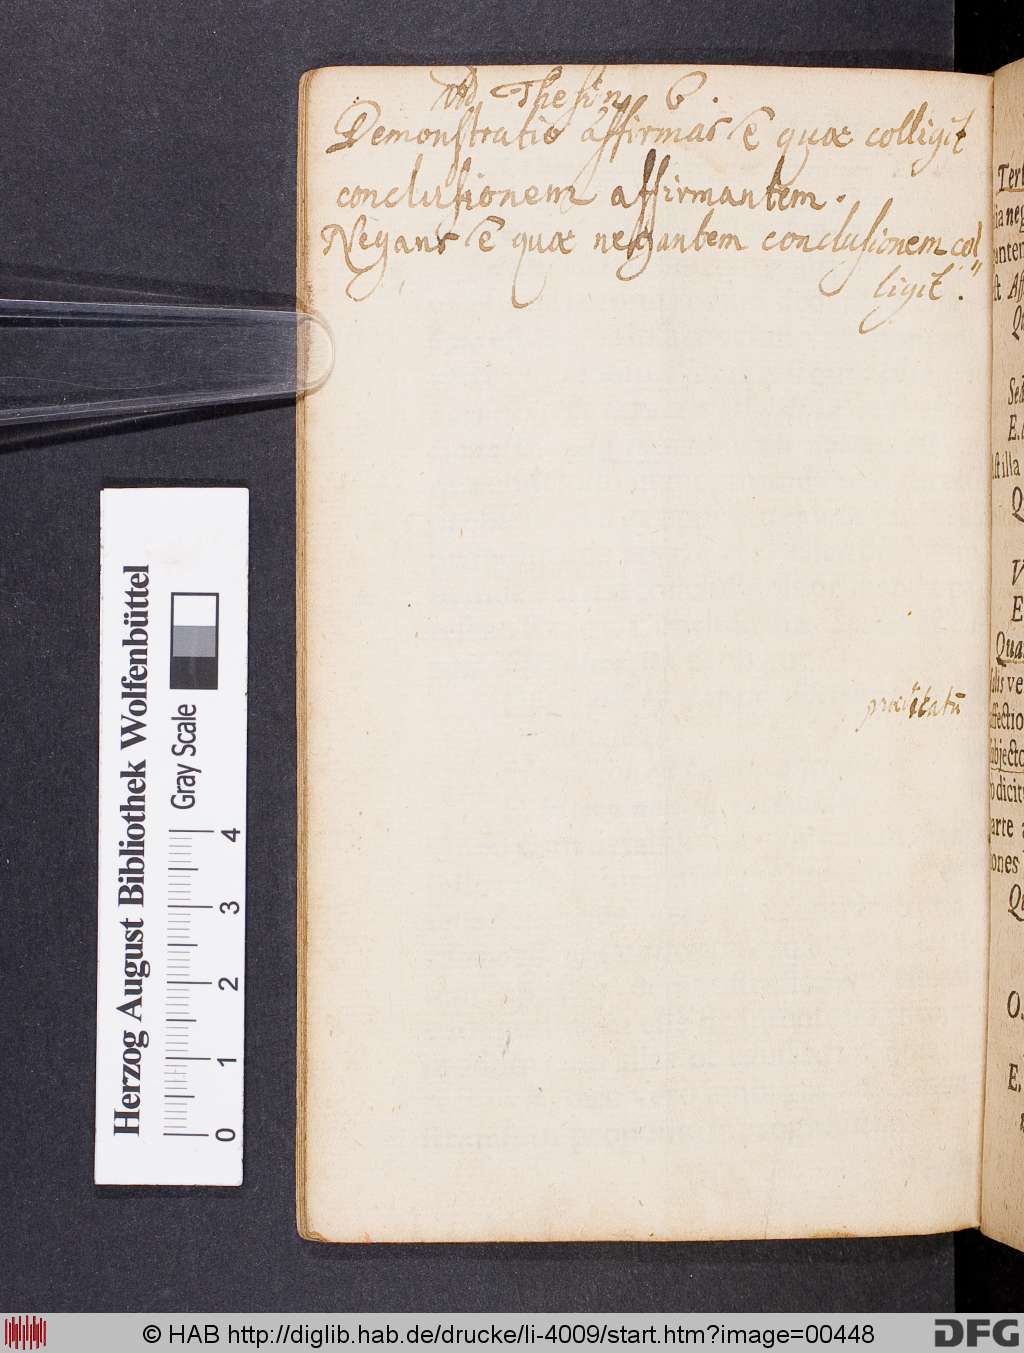 Ad Thesin 6.
Demonstratio affirmās ē quæ colligit
conclusionem affirmantem.
Negans ē quæ negantem conclusionem col„
ligit.
Tert
ia neg
antem
st Aff
Q
E.
st illa
Q
præcitatū
V
E
Qua
ffectio
ubjecto
dicit
parte
iones
Q
O
E.
Herzog August Bibliothek Wolfenbüttel
Gray Scale
0 1 2 3 4
© HAB http://diglib.hab.de/drucke/li-4009/start.htm?image=00448
DFG